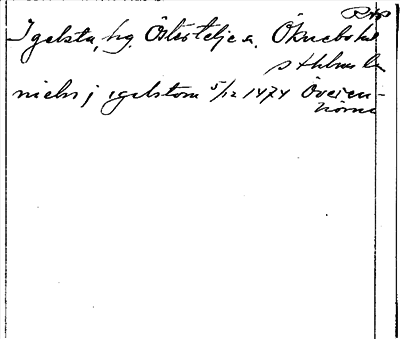 RAp
Igelsta, hg. Östertelje s. Öknebo hd
sthlms l
nielss j igelstom 5/12 1474 Överen-
hörna